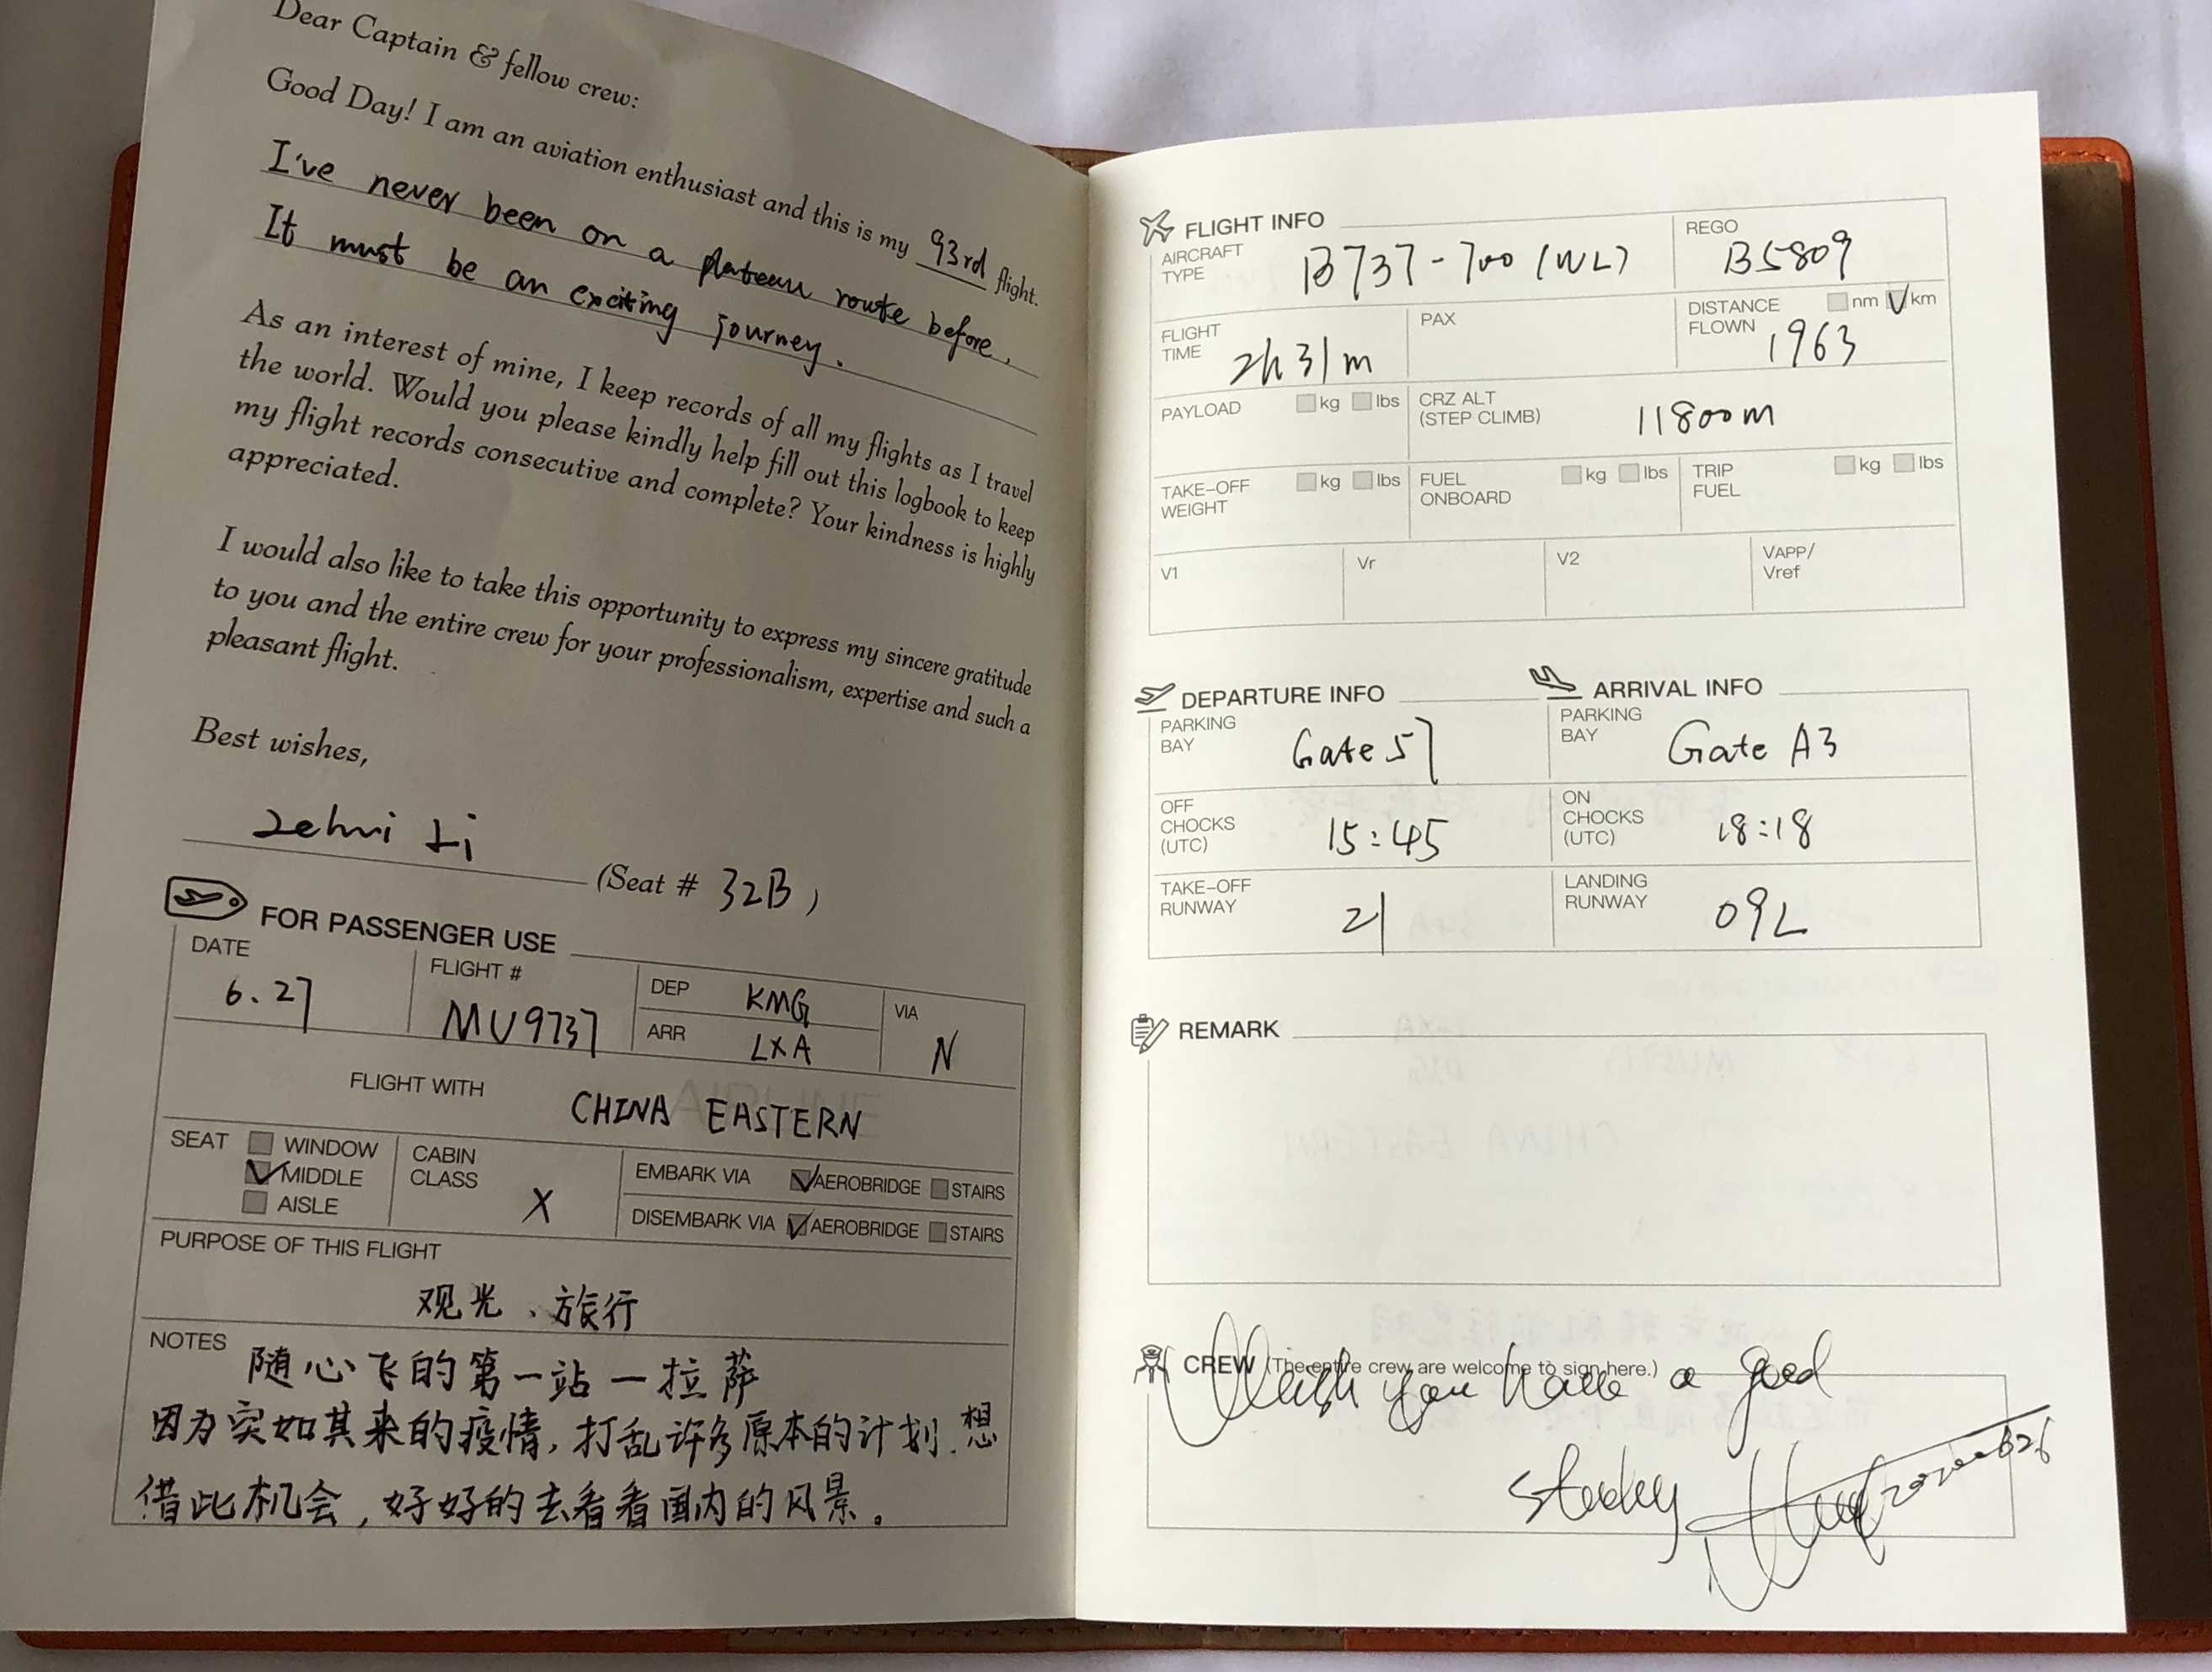 Dear Captain & fellow crew:
Good Day! I am an aviation enthusiast and this is my 93rd flight.
I've never been on a plateau route before,
It must be an exciting journey.
As an interest of mine, I keep records of all my flights as I travel
the world. Would you please kindly help fill out this logbook to keep
my flight records consecutive and complete? Your kindness is highly
appreciated.
I would also like to take this opportunity to express my sincere gratitude
to you and the entire crew for your professionalism, expertise and such a
pleasant flight.
Best wishes,
Li
(Seat # 32B)
FOR PASSENGER USE
DATE 6.27
FLIGHT # MU9737
DEP KMG
ARR LXA
VIA N
FLIGHT WITH CHINA EASTERN
SEAT WINDOW
MIDDLE
AISLE
CABIN
CLASS X
EMBARK VIA AEROBRIDGE STAIRS
DISEMBARK VIA AEROBRIDGE STAIRS
PURPOSE OF THIS FLIGHT
观光、旅行
NOTES 随心飞的第一站一拉萨
因为突如其来的疫情,打乱许多原本的计划.想
借此机会,好好的去看看国内的风景。
FLIGHT INFO
AIRCRAFT
TYPE B737-700 (WL)
REGO B5809
FLIGHT
TIME 2h31m
PAX
DISTANCE nm km
FLOWN 1963
PAYLOAD kg lbs
CRZ ALT
(STEP CLIMB) 11800m
TAKE-OFF kg lbs
WEIGHT
FUEL kg lbs
ONBOARD
TRIP kg lbs
FUEL
V1 Vr V2 VAPP/
Vref
DEPARTURE INFO
PARKING
BAY Gate 57
OFF
CHOCKS
(UTC) 15:45
TAKE-OFF
RUNWAY 21
ARRIVAL INFO
PARKING
BAY Gate A3
ON
CHOCKS
(UTC) 18:18
LANDING
RUNWAY 09L
REMARK
CREW (The entire crew are welcome to sign here.)
Wish you have a good